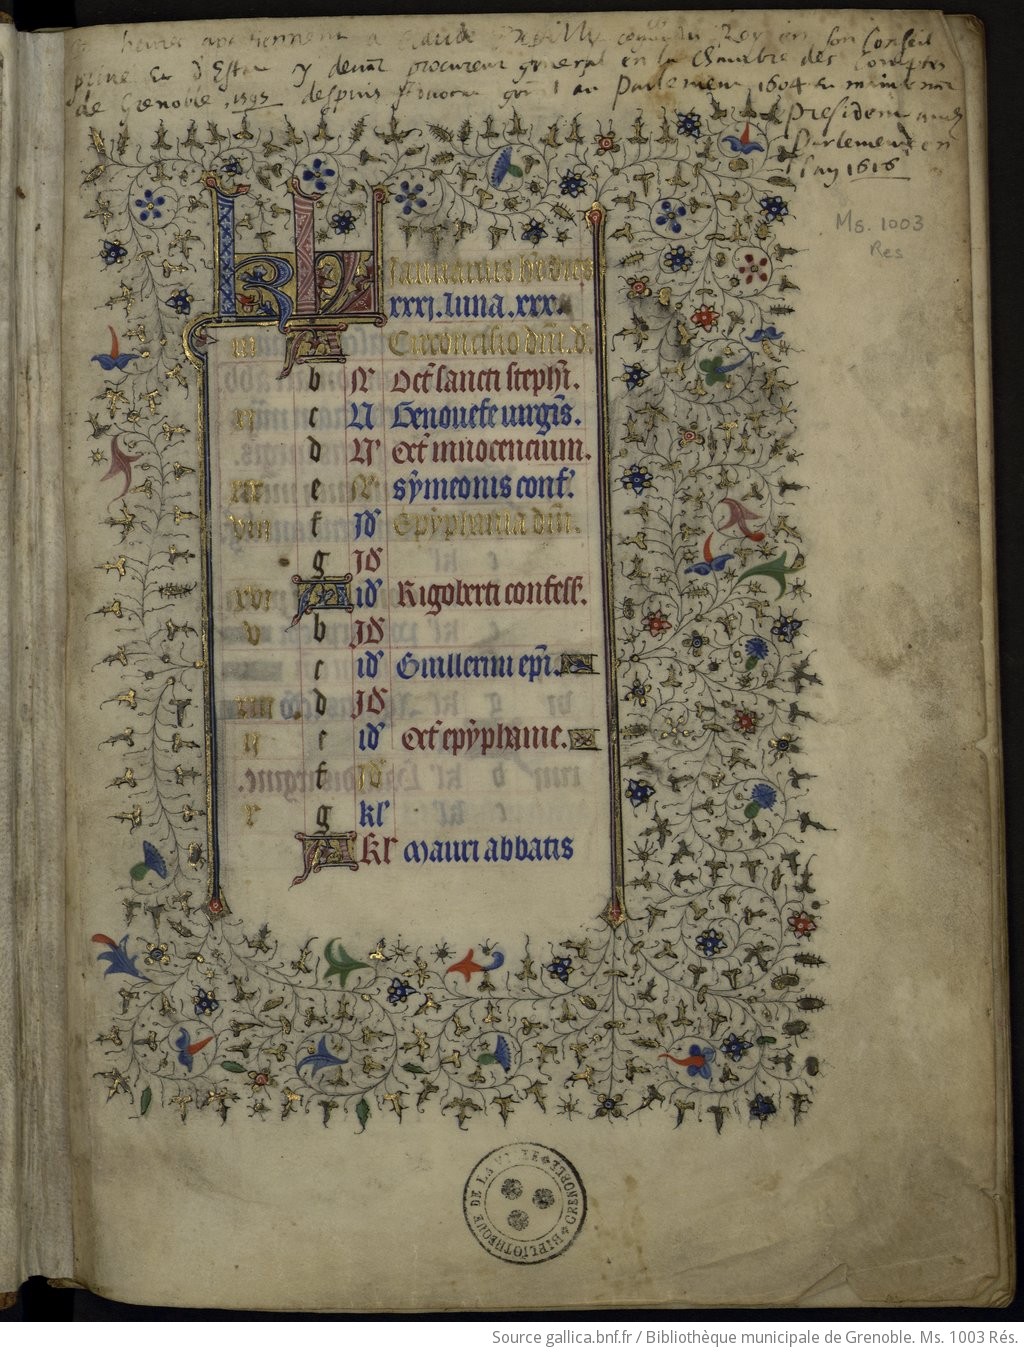 heures apartiennent a Claude Expilly conser du Roy en son Conseil
prive et d'Estat y devant procureur general en la Chambre des Comptes
de Grenoble, 1595 despuis Advocat gnal au Parlement 1604 & maintenant
President audit
Parlement en
l'an 1616
Ms. 1003
Res
KL Januarius hȳ dies
xxxj. luna .xxx.
iij A Circoncisio dm̄i. d.
b N̄ Oct̄ sancti steph̄i.
xj c N Genouefe uirgīs.
d N̄ Oct̄ innocencium.
xix e N̄ sȳmeonis conf̄.
viij f Jd̄ Epȳphania dm̄i.
g Jd̄
xvj A id̄ Rigoberti confess̄.
v b Jd̄
c id̄ Guillermi ep̄i.
xiij d Jd̄
ij e id̄ Oct̄ epȳphanie.
f Jd̄
x g kl̄
A kl̄ Mauri abbatis
BIBLIOTHÈQUE DE LA VILLE GRENOBLE
Source gallica.bnf.fr / Bibliothèque municipale de Grenoble. Ms. 1003 Rés.